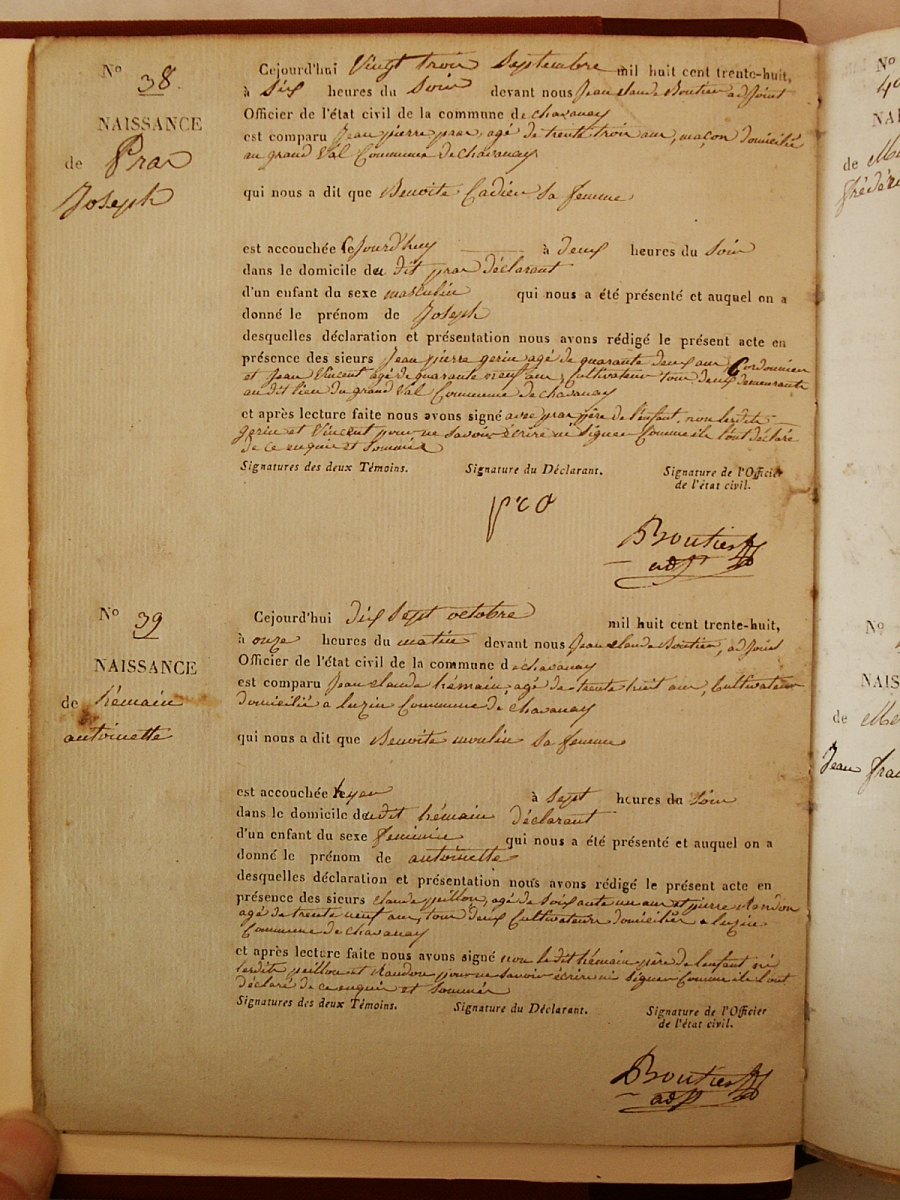 N° 38.
NAISSANCE
de Prar
Joseph
Cejourd'hui Vingt trois Septembre mil huit cent trente-huit,
à Six heures du Soir devant nous Jean claude Boutier adjoint
Officier de l'état civil de la commune de chavanay
est comparu Jean pierre prar, agé de trente trois ans, maçon domicilié
au grand Val Commune de chavanay
qui nous a dit que Benoite Cadier Sa femme
est accouchée Cejourd'huy à deux heures du Soir
dans le domicile du dit prar déclarant
d'un enfant du sexe masculin qui nous a été présenté et auquel on a
donné le prénom de Joseph
desquelles déclaration et présentation nous avons rédigé le présent acte en
présence des sieurs Jean pierre gerin agé de quarante deux ans, Cordonnier
et Jean Vincent agé de quarante neuf ans, Cultivateur tous deux demeurants
au dit lieu du grand Val Commune de chavanay
et après lecture faite nous avons signé avec prar père de l'enfant, non lesdits
gerin et Vincent pour ne savoir écrire ni signer Comme ils l'ont déclaré
de ce enquis et Sommés
Signatures des deux Témoins. Signature du Déclarant. Signature de l'Officier
de l'état civil.
Boutier
adjt
N° 39
NAISSANCE
de hémain
antoinette
Cejourd'hui dix Sept octobre mil huit cent trente-huit,
à onze heures du matin devant nous Jean claude Boutier, adjoint
Officier de l'état civil de la commune de chavanay
est comparu Jean claude hémain, agé de trente huit ans, Cultivateur
domicilié a luzin Commune de chavanay
qui nous a dit que Benoite moulin Sa femme
est accouchée hyer à Sept heures du Soir
dans le domicile dudit hémain déclarant
d'un enfant du sexe feminin qui nous a été présenté et auquel on a
donné le prénom de antoinette
desquelles déclaration et présentation nous avons rédigé le présent acte en
présence des sieurs claude peillon, agé de Soixante un ans et pierre Randon
agé de trente neuf ans, tous deux Cultivateurs domiciliés a luzin
Commune de chavanay
et après lecture faite nous avons signé non le dit hémain père de l'enfant ni
lesdits peillon et Randon pour ne savoir écrire ni Signer Comme ils l'ont
déclaré de ce enquis et Sommés
Signatures des deux Témoins. Signature du Déclarant. Signature de l'Officier
de l'état civil.
Boutier
adjt
N°
de
N°
NAIS
de
Jean